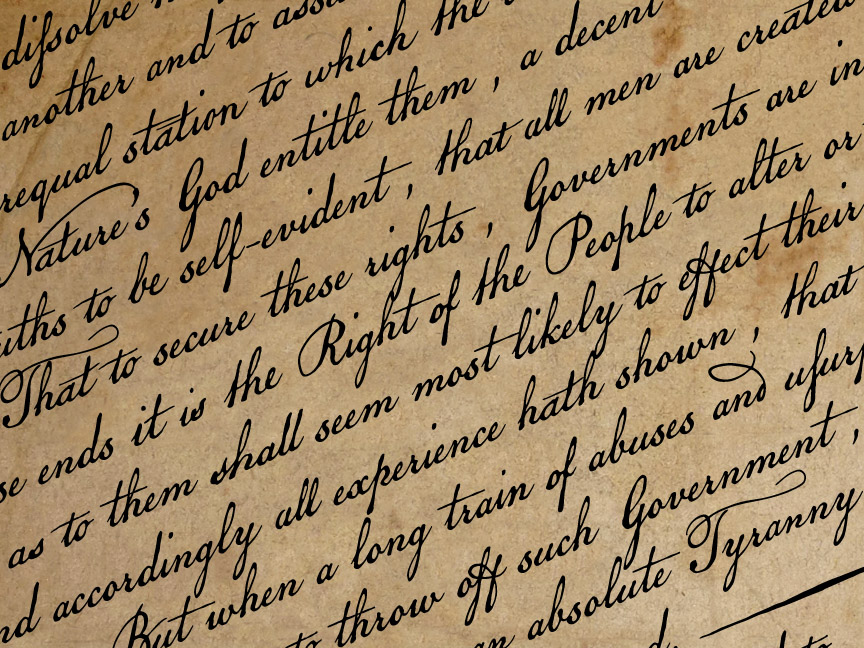 diſsolve
another and to
equal station to which the
Nature's God entitle them , a decent
uths to be self-evident , that all men are created
That to secure these rights , Governments are in
se ends it is the Right of the People to alter or
as to them shall seem most likely to effect their
nd accordingly all experience hath shown , that
But when a long train of abuses and uſurp
to throw off such Government ,
an absolute Tyranny